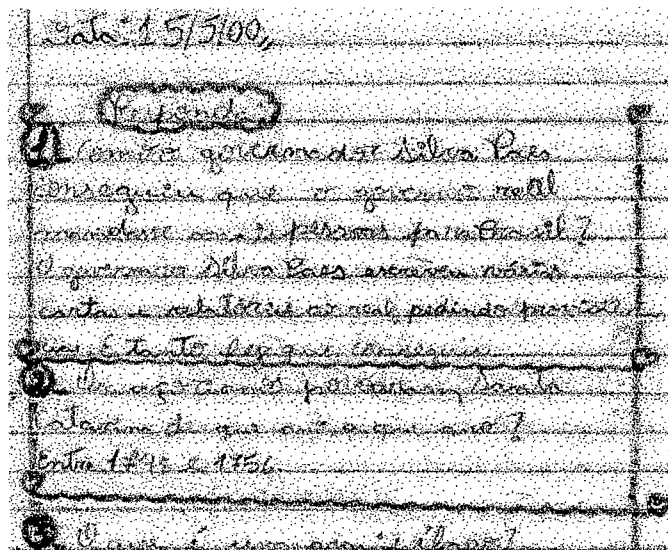 Data: 15/5/00,,
Responda:
1 Como o governador Silva Paes
conseguiu que o governo real
mandasse mais pessoas para Brasil?
O governador Silva Paes escreveu várias
cartas e relatórios ao real, pedindo
E tanto fez que conseguiu.
2 Os açorianos povoaram Santa
Catarina de que ano a que ano?
Entre 1748 e 1756.
3 O que é um arquipélago?